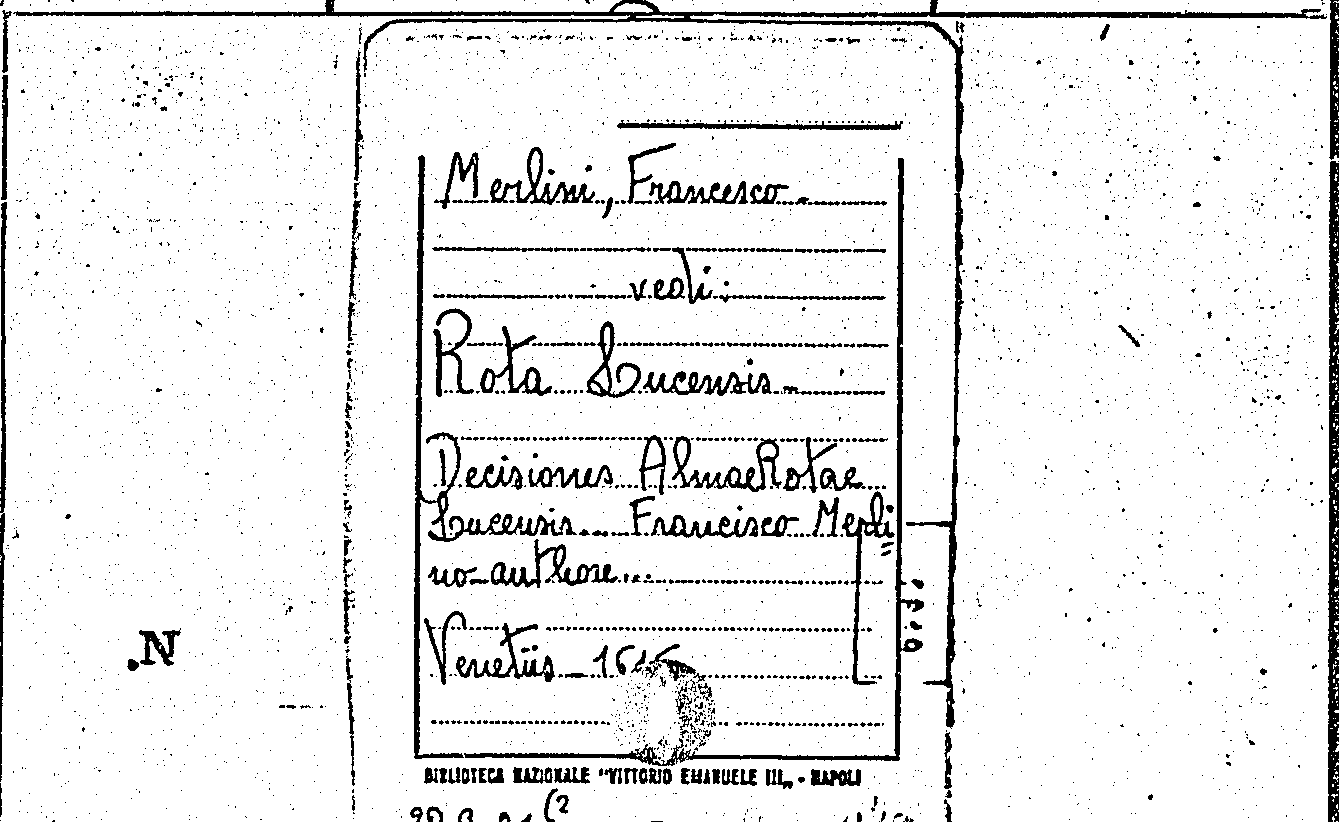 Merlini, Francesco.
vedi:
Rota Lucensis.
Decisiones Almae Rotae
Lucensis... Francisco Merli=
no authore...
Venetiis - 16
BIBLIOTECA NAZIONALE "VITTORIO EMANUELE III„ - NAPOLI
.N